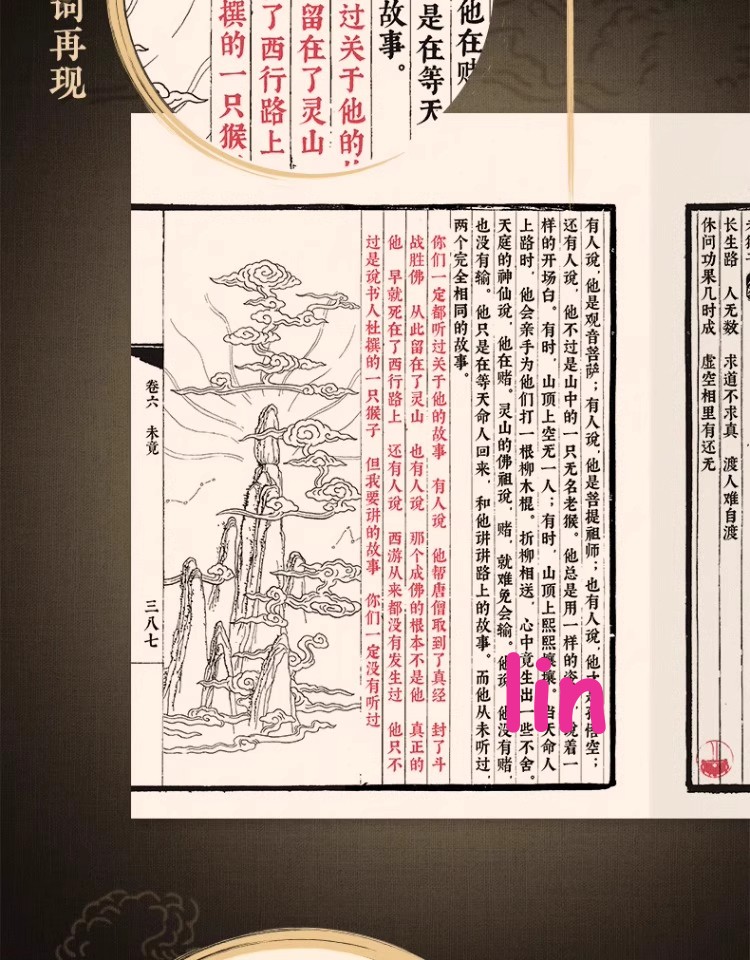 词再现
他在赌
是在等天
故事。
过关于他的
留在了灵山
了西行路上
撰的一只猴
长生路 人无数 求道不求真 渡人难自渡
休问功果几时成 虚空相里有还无
有人说，他是观音菩萨；有人说，他是菩提祖师；也有人说，他
空；
还有人说，他不过是山中的一只无名老猴。他总是用一样的
说着一
样的开场白。有时，山顶上空无一人；有时，山顶上熙熙攘攘。当天命人
上路时，他会亲手为他们打一根柳木棍。折柳相送，心中竟生出一些不舍。
天庭的神仙说，他在赌。灵山的佛祖说，赌，就难免会输。他说，他没有赌，
也没有输。他只是在等天命人回来，和他讲讲路上的故事。而他从未听过，
两个完全相同的故事。
你们一定都听过关于他的故事 有人说 他帮唐僧取到了真经 封了斗
战胜佛 从此留在了灵山 也有人说 那个成佛的根本不是他 真正的
他 早就死在了西行路上 还有人说 西游从来都没有发生过 他只不
过是说书人杜撰的一只猴子 但我要讲的故事 你们一定没有听过
卷六 未竟
三八七
lin